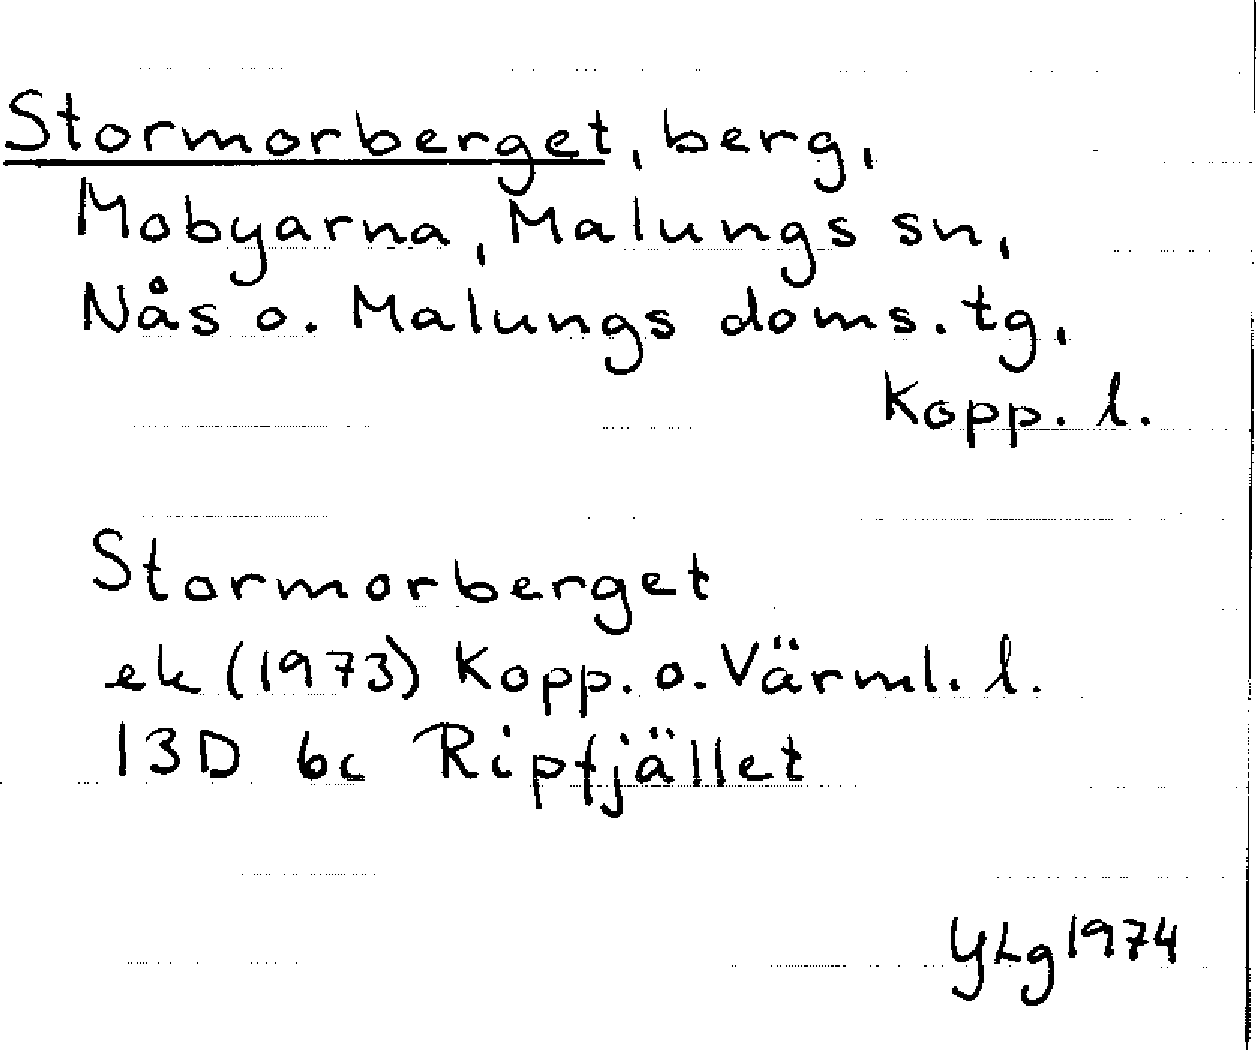 Stormorberget, berg,
Mobyarna, Malungs sn,
Nås o. Malungs doms. tg,
Kopp. l.
Stormorberget
ek (1973) Kopp. o. Värml. l.
13D bc Ripfjället
YLg 1974